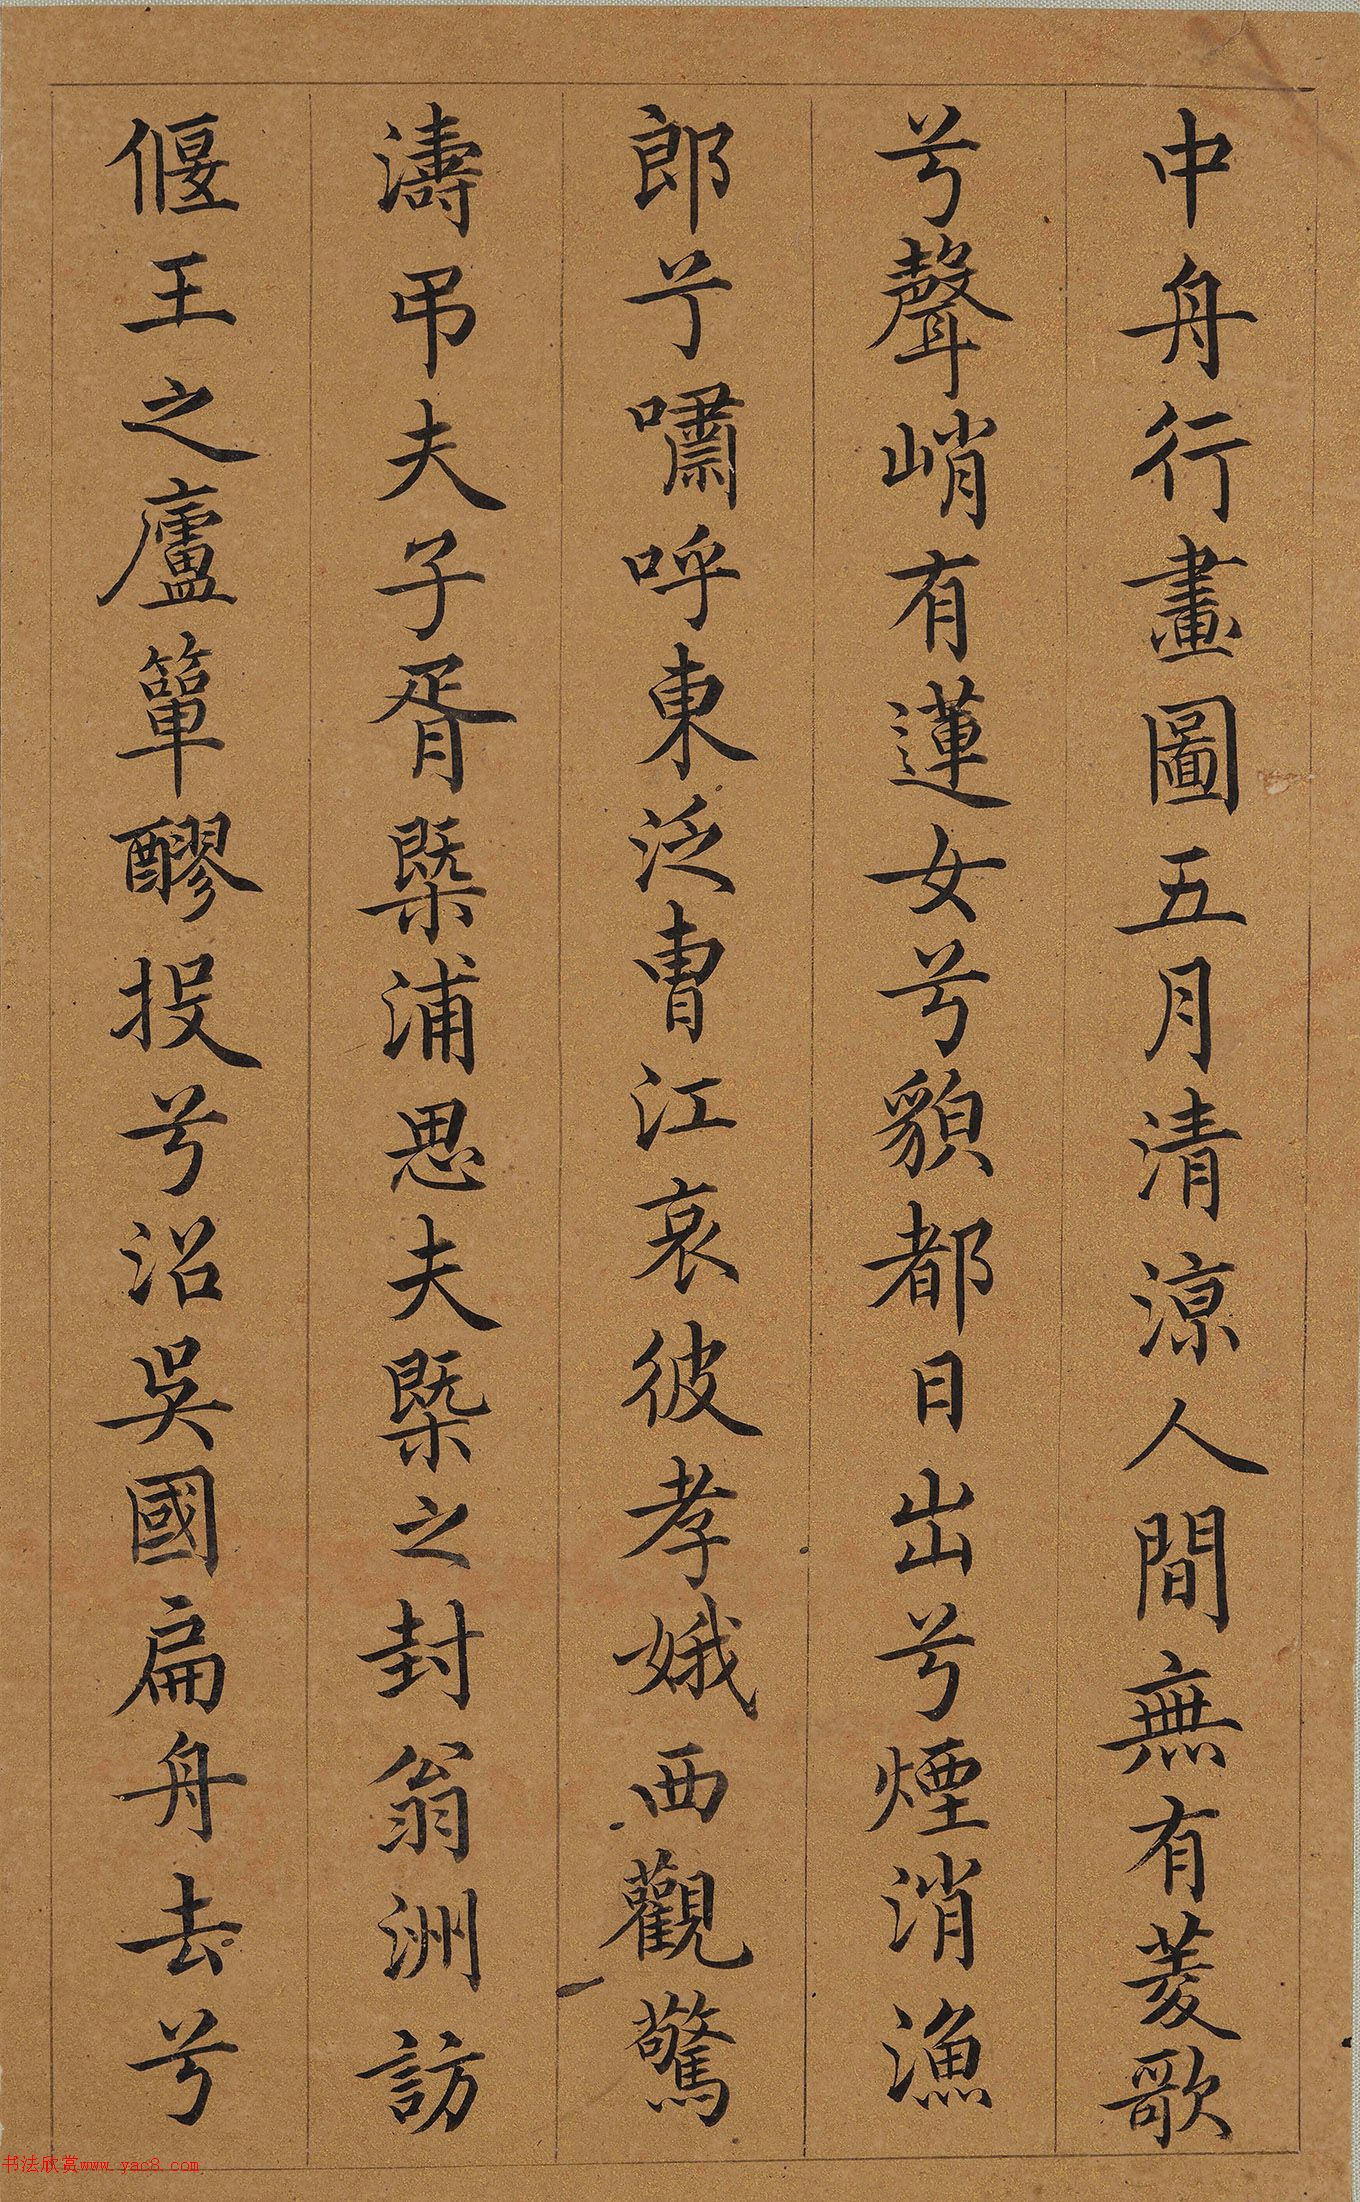 中舟行畫圖五月清涼人間無有菱歌
兮聲峭有蓮女兮貌都日出兮煙消漁
郎兮嘯呼東泛曹江哀彼孝娥西觀驚
濤吊夫子胥槩浦思夫槩之封翁洲訪
偃王之廬簞醪投兮沼吳國扁舟去兮
书法欣赏www.yac8.com